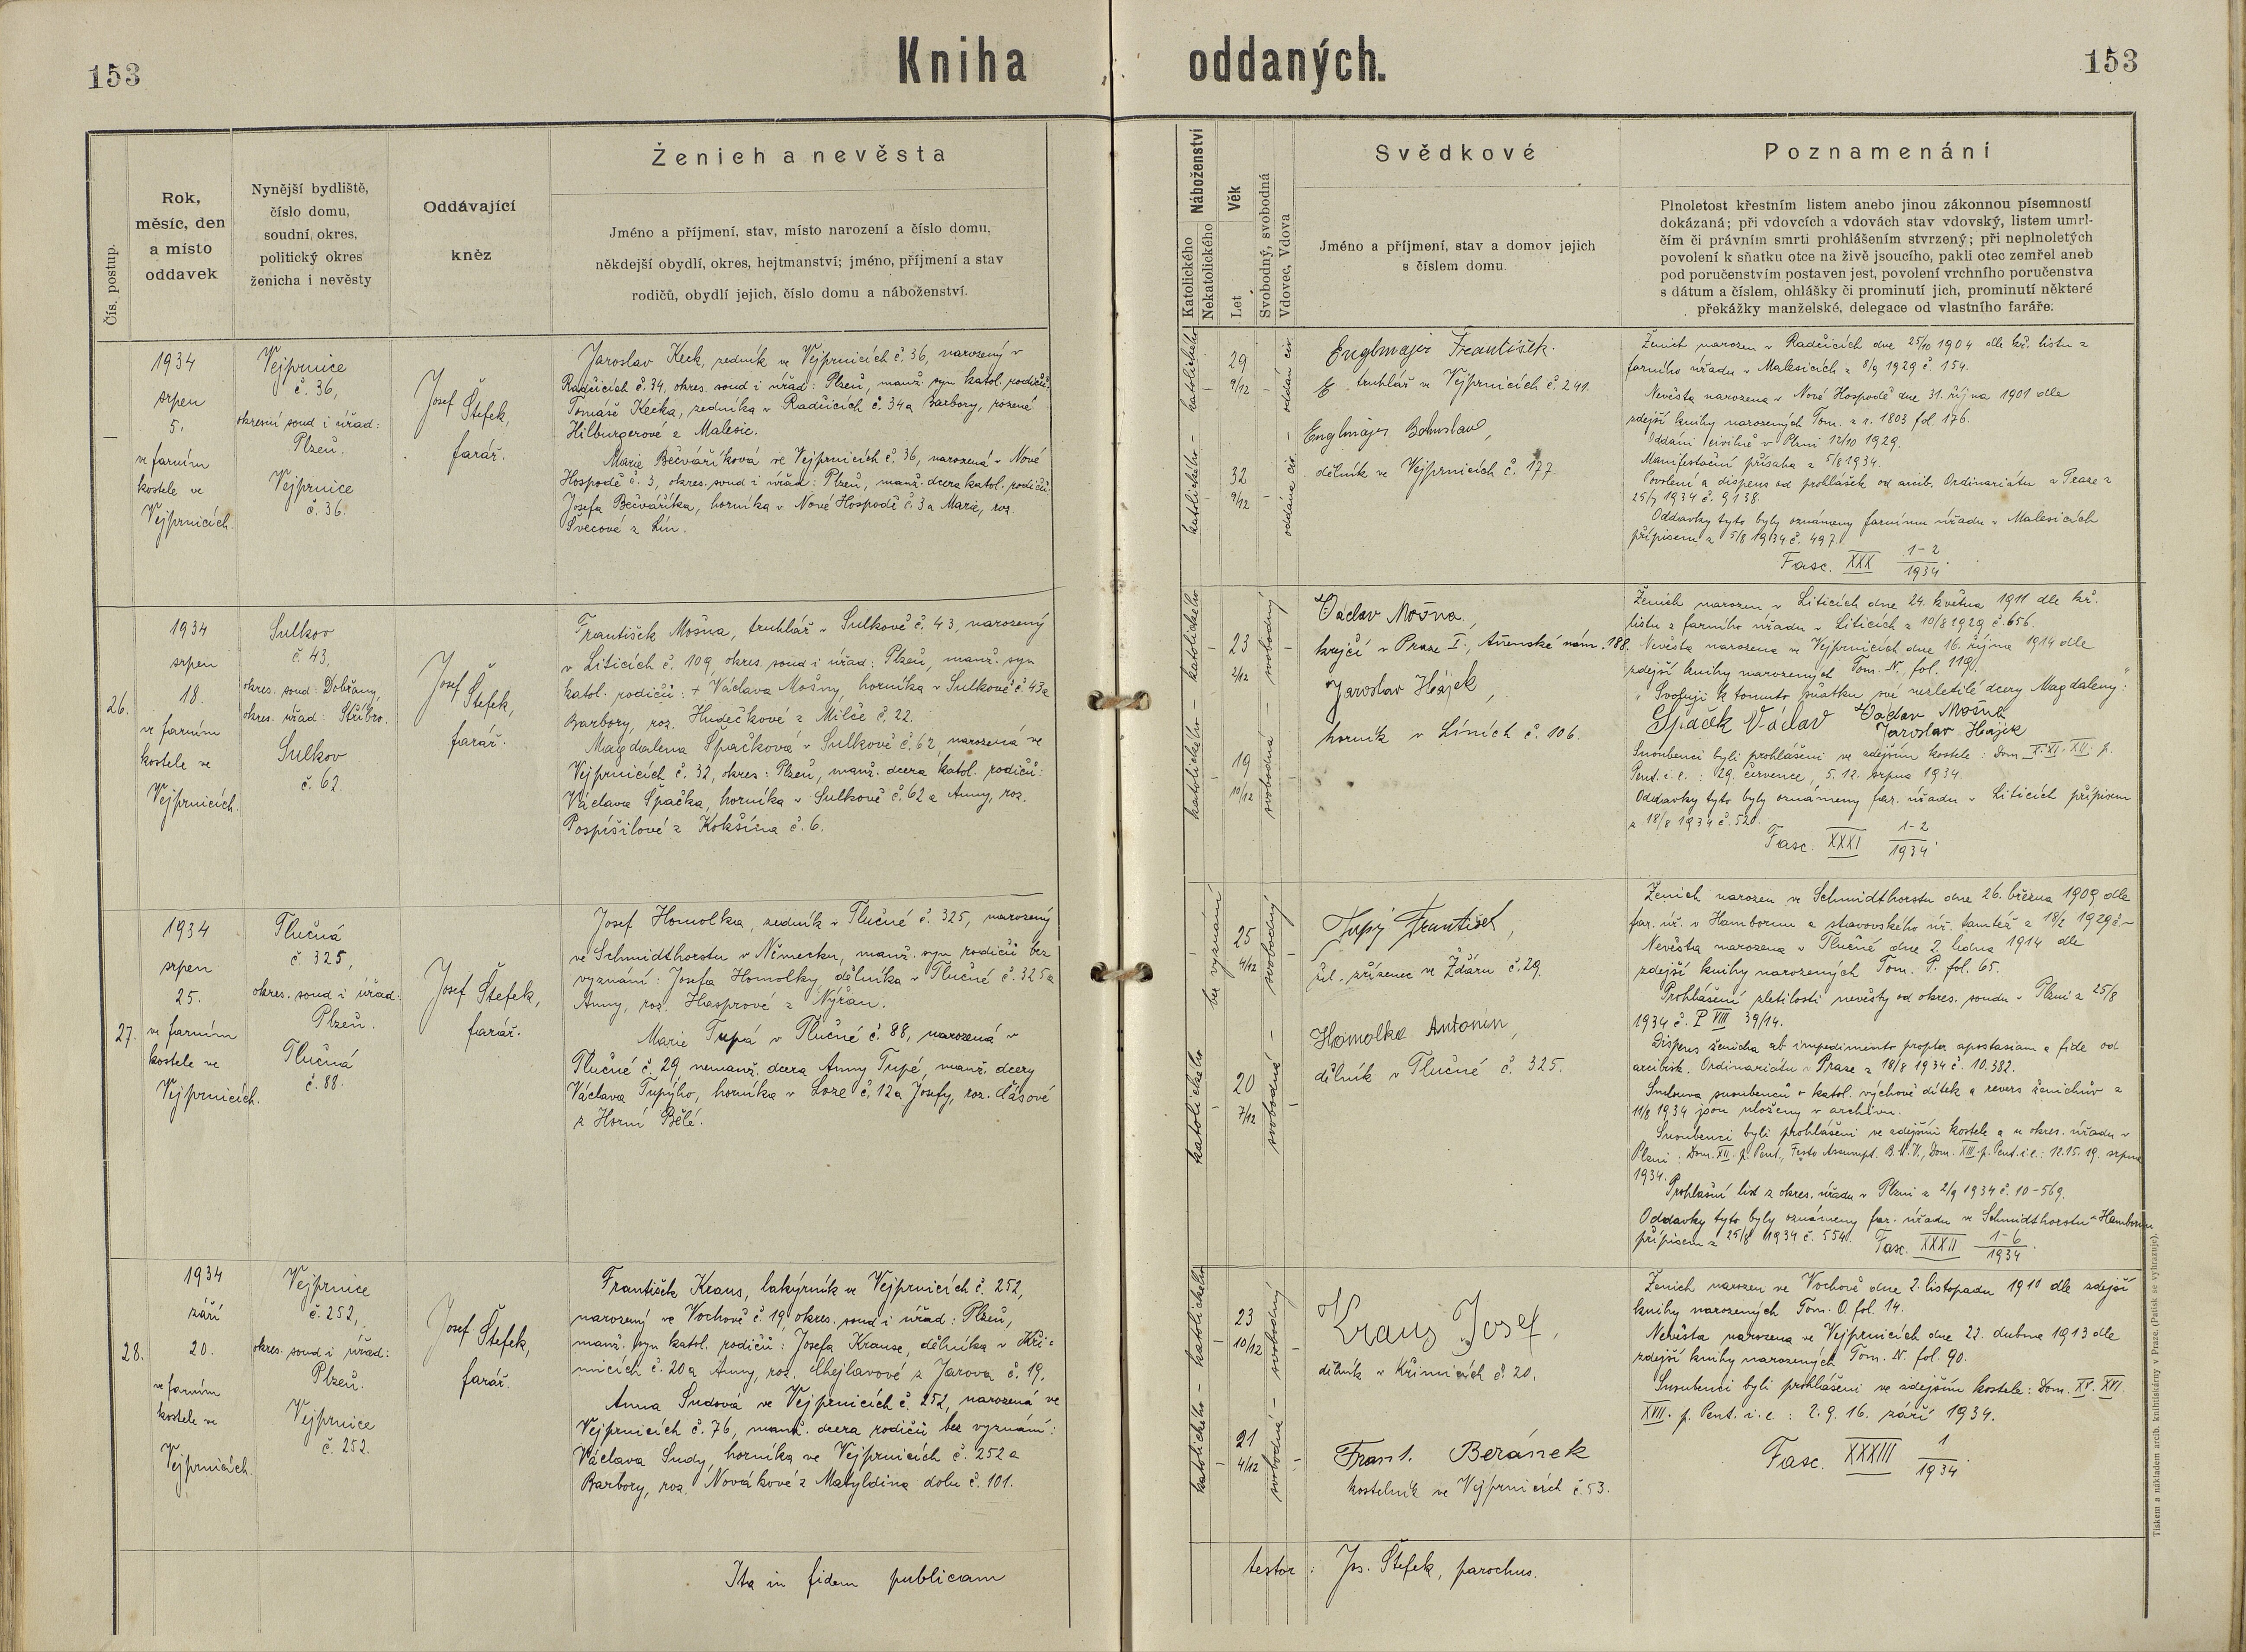 153
Kniha oddaných.
153
Čís. postup.
Rok,
měsíc, den
a místo
oddavek
Nynější bydliště,
číslo domu,
soudní, okres,
politický okres
ženicha i nevěsty
Oddávající
kněz
Ženich a nevěsta
Jméno a příjmení, stav, místo narození a číslo domu,
někdejší obydlí, okres, hejtmanství; jméno, příjmení a stav
rodičů, obydlí jejich, číslo domu a náboženství.
Náboženství
Katolického
Nekatolického
Věk
Let
Svobodný, svobodná
Vdovec, Vdova
Svědkové
Jméno a příjmení, stav a domov jejich
s číslem domu.
Poznamenání
Plnoletost křestním listem anebo jinou zákonnou písemností
dokázaná; při vdovcích a vdovách stav vdovský, listem umrl-
čím či právním smrti prohlášením stvrzený; při neplnoletých
povolení k sňatku otce na živě jsoucího, pakli otec zemřel aneb
pod poručenstvím postaven jest, povolení vrchního poručenstva
s dátum a číslem, ohlášky či prominutí jich, prominutí některé
překážky manželské, delegace od vlastního faráře.
—
1934
srpen
5.
ve farním
kostele ve
Vejprnicích.
Vejprnice
č. 36,
okresní soud i úřad:
Plzeň.
Vejprnice
č. 36.
Josef Štefek,
farář.
Jaroslav Keck, zedník ve Vejprnicích č. 36, narozený v
Radčicích č. 34. okres. soud i úřad: Plzeň, manž. syn katol. rodičů:
Tomáše Kecka, zedníka v Radčicích č. 34 a Barbory, rozené
Hilburgerové z Malesic.
Marie Bečváříková ve Vejprnicích č. 36, narozená v Nové
Hospodě č. 3, okres. soud i úřad: Plzeň, manž. dcera katol. rodičů:
Josefa Bečvaříka, horníka v Nové Hospodě č. 3 a Marie, roz.
Švecové z Lín.
katolického - katolického
29
9/12
32
9/12
oddána civ. - oddán civ.
Englmajer František.
truhlář ve Vejprnicích č. 241.
Englmajer Bohuslav,
dělník ve Vejprnicích č. 177.
Ženich narozen v Radčicích dne 25/10 1904 dle kř. listu z
farního úřadu v Malesicích z 8/9 1929 č. 154.
Nevěsta narozena v Nové Hospodě dne 31. října 1901 dle
zdejší knihy narozených Tom. z r. 1803 fol. 176.
Oddáni civilně v Plzni 12/10 1929.
Manifestační přísaha z 5/8 1934.
Povolení a dispens od prohlášek od arcib. Ordinariátu v Praze z
25/7 1934 č. 9138.
Oddavky tyto byly oznámeny farnímu úřadu v Malesicích
přípisem z 5/8 1934 č. 497.
Fasc. XXX 1-2/1934.
26.
1934
srpen
18.
ve farním
kostele ve
Vejprnicích.
Sulkov
č. 43,
okres. soud: Dobřany,
okres. úřad: Stříbro.
Sulkov
č. 62.
Josef Štefek,
farář.
František Mošna, truhlář v Sulkově č. 43, narozený
v Liticích č. 109, okres. soud i úřad: Plzeň, manž. syn
katol. rodičů: + Václava Mošny, horníka v Sulkově č. 43 a
Barbory, roz. Hudečkové z Milče č. 22.
Magdalena Špačková v Sulkově č. 62, narozená ve
Vejprnicích č. 32, okres: Plzeň, manž. dcera katol. rodičů:
Václava Špačka, horníka v Sulkově č. 62 a Anny, roz.
Pospíšilové z Kokšína č. 6.
katolického - katolického
23
2/12
19
10/12
svobodná - svobodný
Václav Mošna,
krejčí v Praze I., Anenské nám. 188.
Jaroslav Hájek,
horník v Líních č. 106.
Ženich narozen v Liticích dne 24. května 1911 dle kř.
listu z farního úřadu v Liticích z 10/8 1929 č. 656.
Nevěsta narozena ve Vejprnicích dne 16. října 1914 dle
zdejší knihy narozených Tom. N. fol. 119.
„Svoluji k tomuto sňatku své nezletilé dcery Magdaleny:“
Špaček Václav Václav Mošna
Jaroslav Hájek
Snoubenci byli prohlášeni ve zdejším kostele: Dom. X. XI. XII. p.
Pent. i. e.: 29. července, 5. 12. srpna 1934.
Oddavky tyto byly oznámeny far. úřadu v Liticích přípisem
z 18/8 1934 č. 520.
Fasc. XXXI 1-2/1934.
27.
1934
srpen
25.
ve farním
kostele ve
Vejprnicích.
Tlučná
č. 325,
okres. soud i úřad:
Plzeň.
Tlučná
č. 88.
Josef Štefek,
farář.
Josef Homolka, zedník v Tlučné č. 325, narozený
ve Schmidthorstu v Německu, manž. syn rodičů bez
vyznání: Josefa Homolky, dělníka v Tlučné č. 325 a
Anny, roz. Hasprové z Nýřan.
Marie Tupá v Tlučné č. 88, narozená v
Tlučné č. 29, nemanž. dcera Anny Tupé, manž. dcery
Václava Tupýho, horníka v Loze č. 12 a Josefy, roz.
z Horní Bělé.
katolického bez vyznání
25
4/12
20
7/12
svobodná - svobodný
Tupý František,
žel. zřízenec ve Žďáru č. 29.
Homolka Antonín,
dělník v Tlučné č. 325.
Ženich narozen ve Schmidthorstu dne 26. března 1909 dle
far. úř. v Hambornu a stavovského úř. tamtéž z 18/2 1929 č. -
Nevěsta narozena v Tlučné dne 2. ledna 1914 dle
zdejší knihy narozených Tom. P. fol. 65.
Prohlášení zletilosti nevěsty od okres. soudu v Plzni z 25/8
1934 č. P VIII 39/14.
Dispens ženicha ab impedimento propter apostasiam a fide od
arcibisk. Ordinariátu v Praze z 18/8 1934 č. 10.382.
Smlouva snoubenců o katol. výchově dítek a revers ženichův z
11/8 1934 jsou uloženy v archivu.
Snoubenci byli prohlášeni ve zdejším kostele a u okres. úřadu v
Plzni: Dom. XII. p. Pent., Festo Assumpt. B.M.V., Dom. XIII. p. Pent. i. e.: 12. 15. 19. srpna
1934.
Prohlašní list z okres. úřadu v Plzni z 2/9 1934 č. 10-569.
Oddavky tyto byly oznámeny far. úřadu ve Schmidthorstu-Hamborn
přípisem z 25/8 1934 č. 554. Fasc. XXXII 1-6/1934.
28.
1934
září
20.
ve farním
kostele ve
Vejprnicích.
Vejprnice
č. 252,
okres. soud i úřad:
Plzeň.
Vejprnice
č. 252.
Josef Štefek,
farář.
František Kraus, lakýrník ve Vejprnicích č. 252,
narozený ve Vochově č. 19, okres. soud i úřad: Plzeň,
manž. syn katol. rodičů: Josefa Krause, dělníka v Kři=
micích č. 20 a Anny, roz. Chejlavové z Jarova č. 19.
Anna Sudová ve Vejprnicích č. 252, narozená ve
Vejprnicích č. 76, manž. dcera rodičů bez vyznání:
Václava Sudy, horníka ve Vejprnicích č. 252 a
Barbory, roz. Novákové z Matyldina dolu č. 101.
katolického - katolického
23
10/12
21
4/12
svobodná - svobodný
Kraus Josef,
dělník v Křimicích č. 20.
Frant. Beránek
kostelník ve Vejprnicích č. 53.
Ženich narozen ve Vochově dne 2. listopadu 1910 dle zdejší
knihy narozených Tom. O. fol. 14.
Nevěsta narozena ve Vejprnicích dne 22. dubna 1913 dle
zdejší knihy narozených Tom. N. fol. 90.
Snoubenci byli prohlášeni ve zdejším kostele: Dom. XV. XVI.
XVII. p. Pent. i. e.: 2. 9. 16. září 1934.
Fasc. XXXIII 1/1934.
Ita in fidem publicam testor: Jos. Štefek, parochus.
Tiskem a nákladem arcib. knihtiskárny v Praze. (Patisk se vyhrazuje).